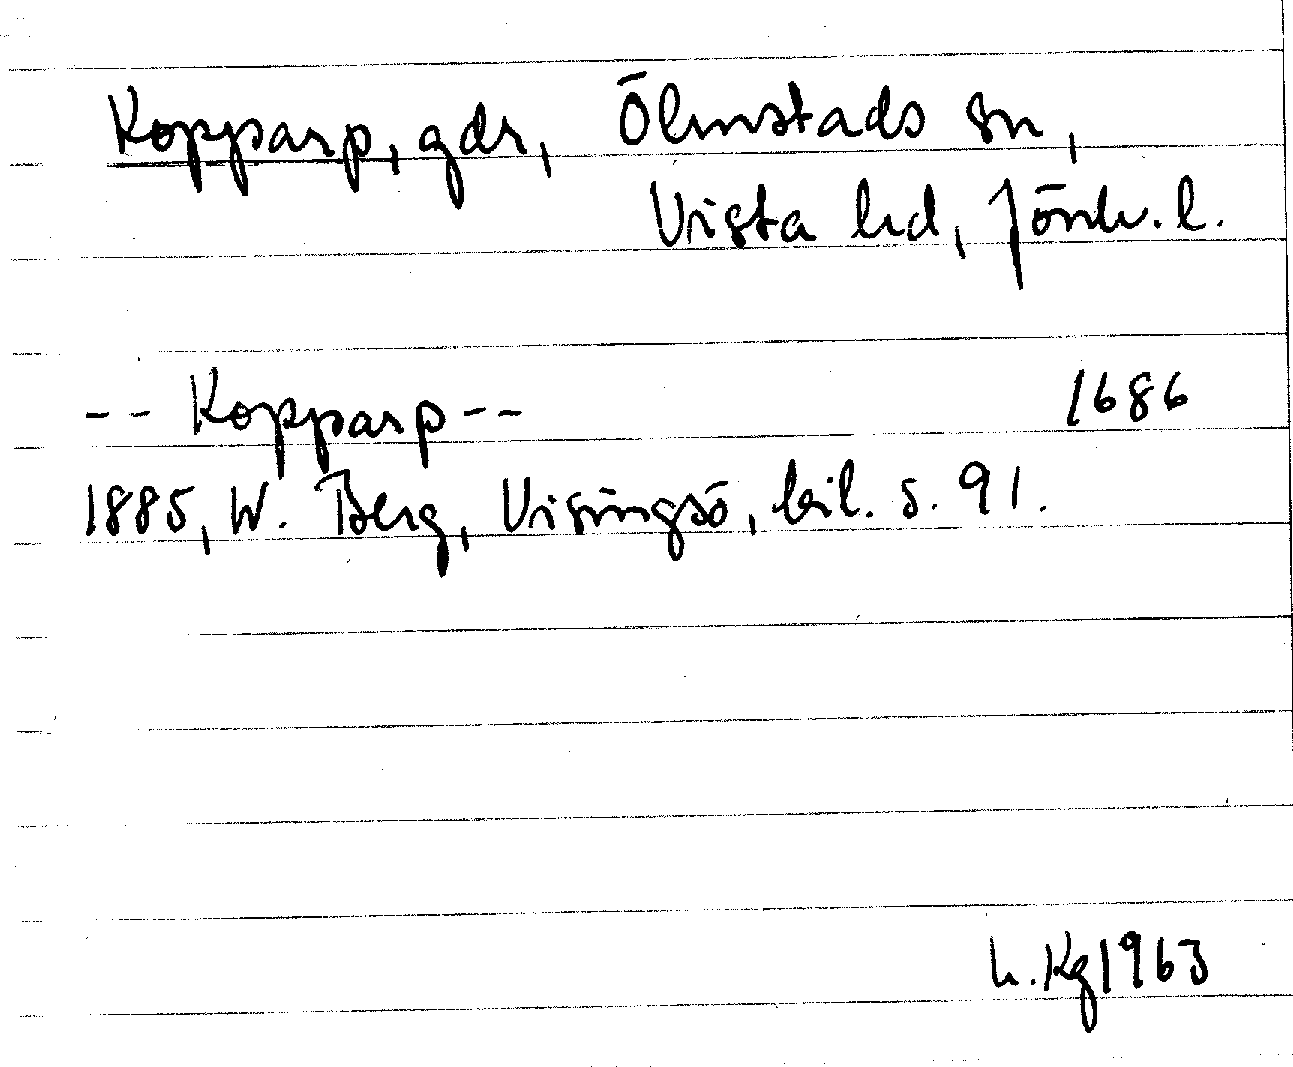 Kopparp, gdr, Ölmstads sn,
Vista hd, Jönk. l.
-- Kopparp -- 1686
1885, W. Berg, Visingsö, bil. s. 91.
h. Kg 1963